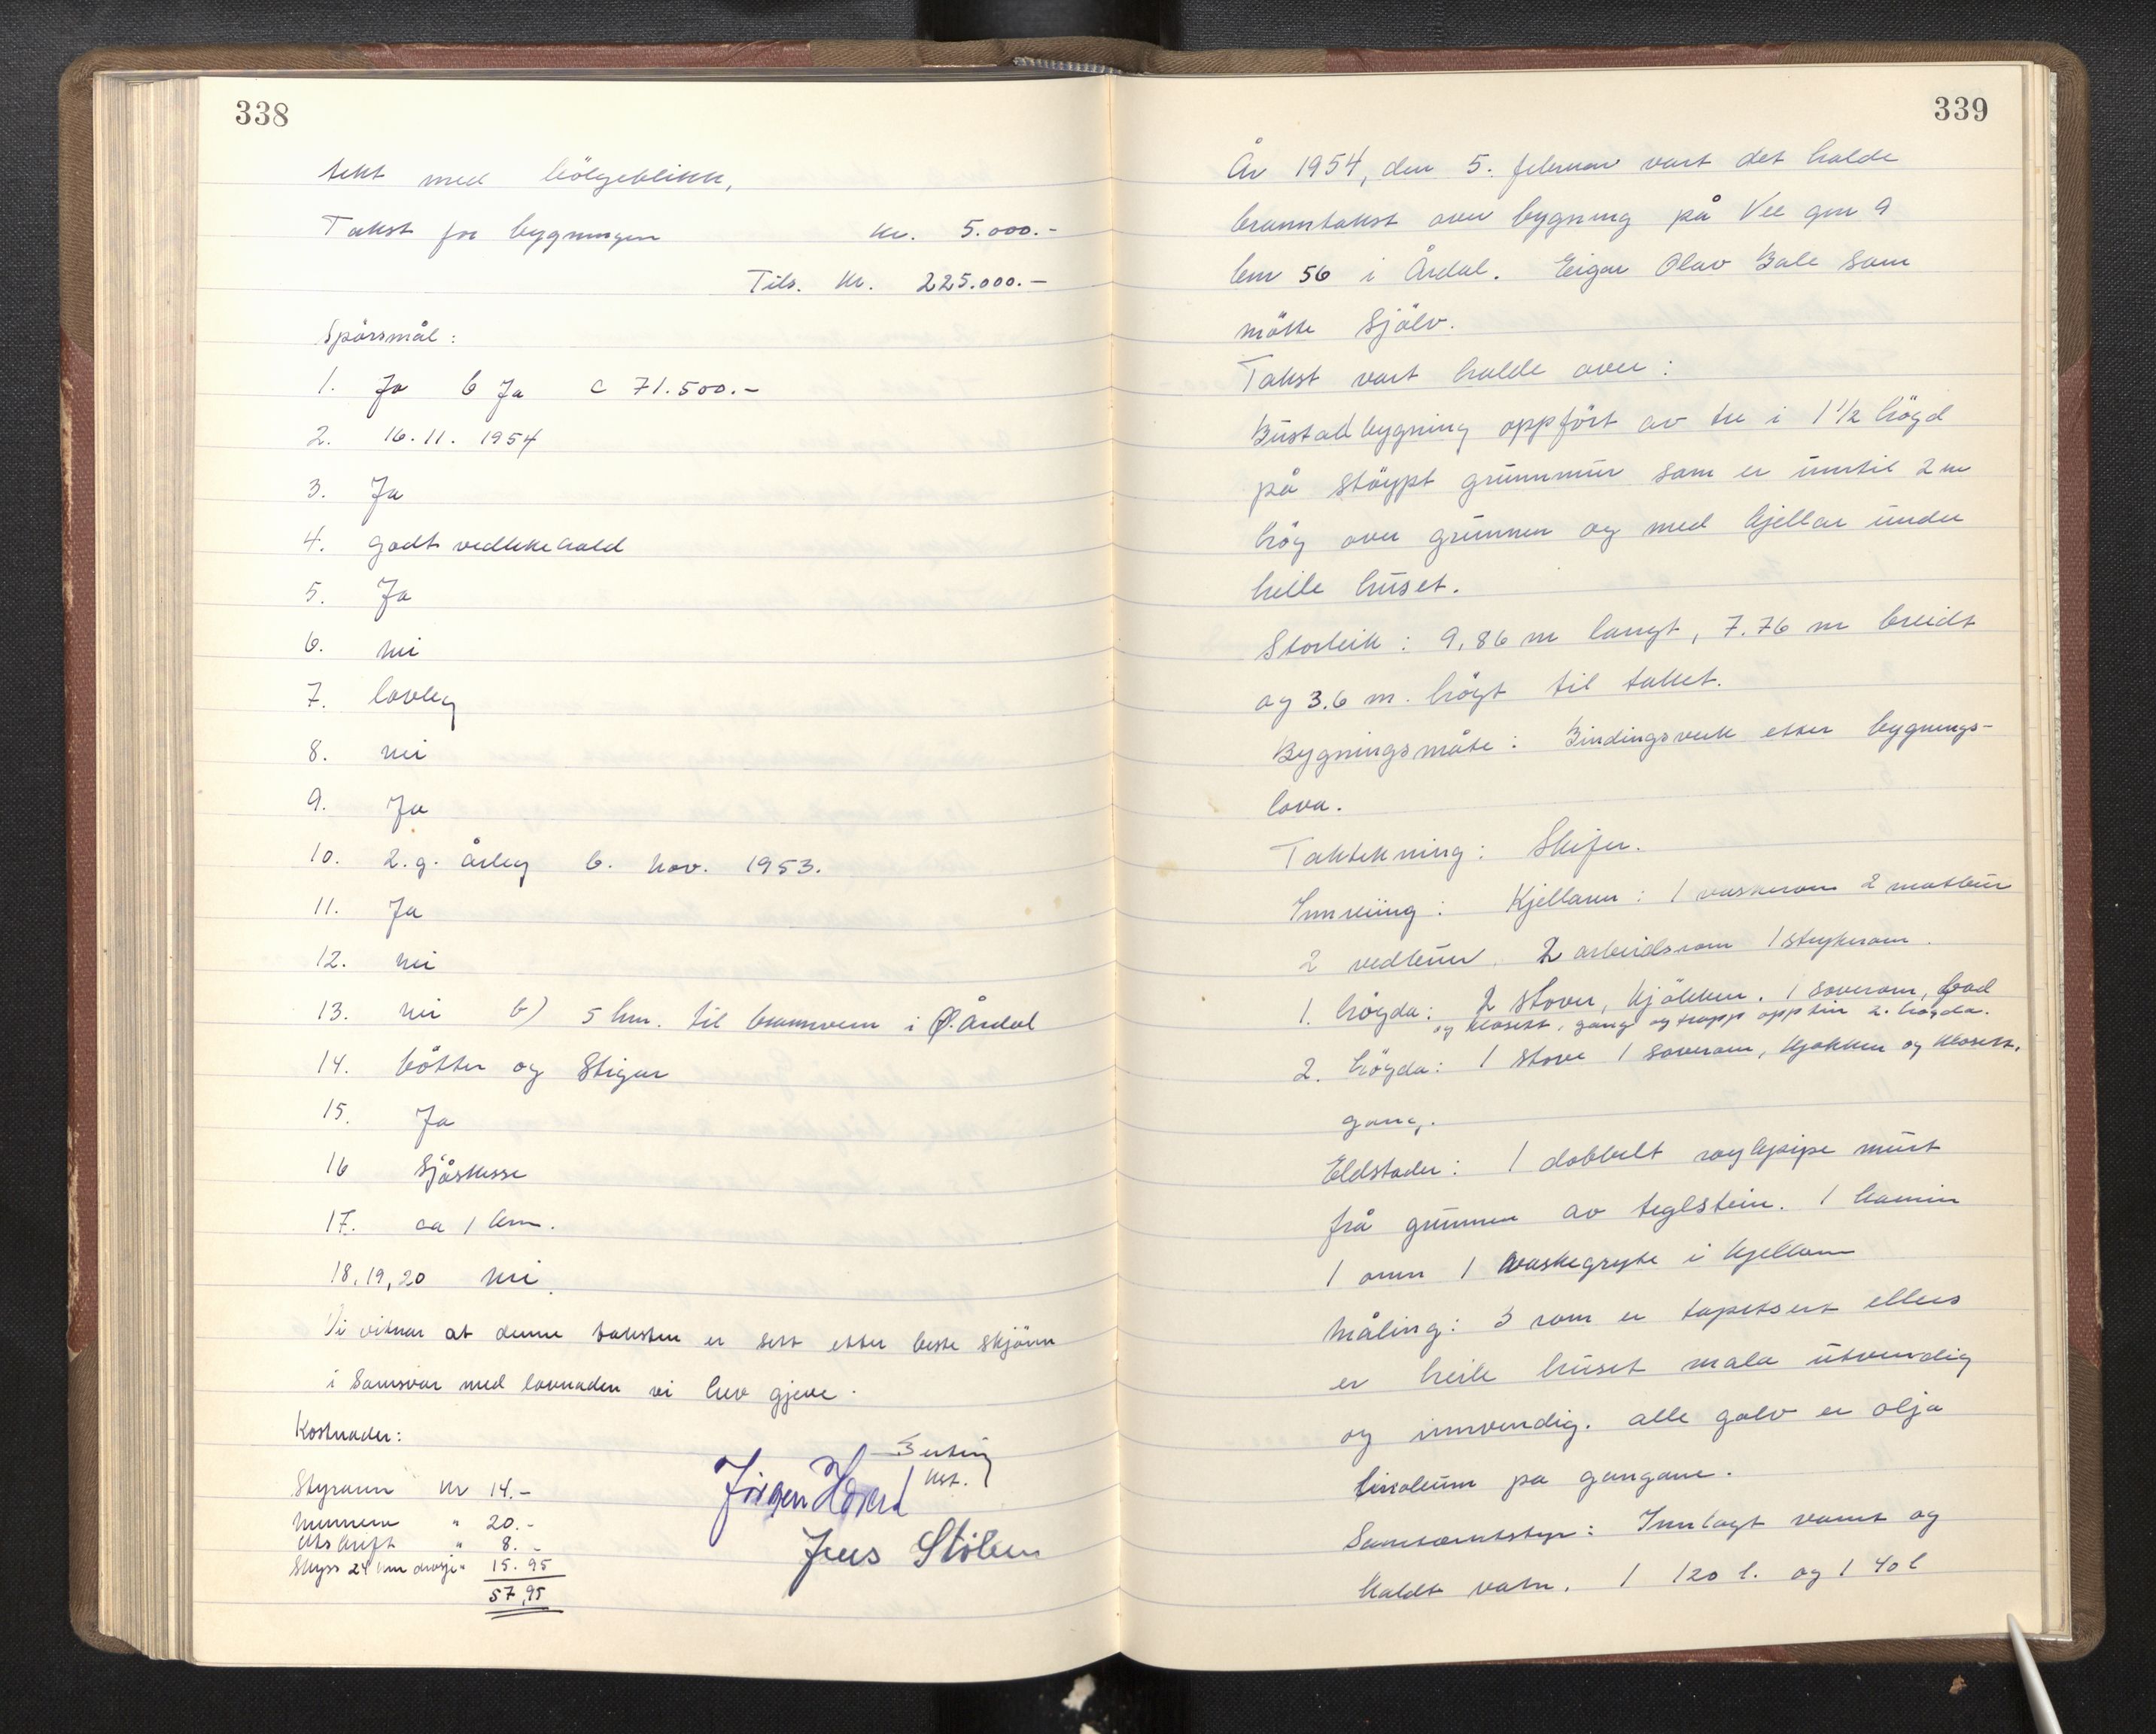 338
tekt med bölgeblikk,
Takst for bygningen kr. 5.000.-
Tils. kr. 225.000.-
Spörsmål:
1. Ja b Ja c 71.500.-
2. 16.11. 1954
3. Ja
4. godt vedlikehald
5. Ja
6. nei
7. lovleg
8. nei
9. Ja
10. 2.g. årleg b. nov. 1953.
11. Ja
12. nei
13. nei b) 5 km. til brannvern i Ø. Årdal
14. bötter og Stigar
15. Ja
16 Sjöskesse
17. ca 1 km.
18, 19, 20 nei.
Vi vitnar at denne taksten er sett etter beste skjönn
i Samsvar med lovnaden vi hev gjeve.
Kostnader:
Styraren kr 14.-
Mennene " 20.-
Utskrift " 8.-
Skyss 24 km drosje " 15.95
57,95
Jens Stölen
339
År 1954, den 5. februar vart det halde
branntakst over bygning på Vee gnr 9
bnr 56 i Årdal. Eigar Olav Bale som
mötte Sjölv.
Takst vart halde over:
Bustadbygning oppfört av tre i 1 1/2 högd
på stöypt grunnmur som er inntil 2 m
hög over grunnen og med kjellar under
heile huset.
Storleik: 9,86 m langt, 7.76 m breidt
og 3.6 m. högt til taket.
Bygningsmåte: Bindingsverk etter bygnings-
lova.
Taktekning: Skifer.
Innreiing: Kjellaren: 1 vaskerom 2 matbur
2 vedbur. 2 arbeidsrom 1 strykerom.
1. högda: 2 stover, kjökken. 1 soverom, bad
og klosett, gang og trapp opp til 2. högda.
2. högda: 1 stove 1 soverom, kjökken og klosett.
gang.
Eldstader: 1 dobbelt röykpipe murt
frå grunnen av teglstein. 1 kamin
1 omn 1 vaskegryte i kjellaren
Måling: 3 rom er tapetsert ellers
er heile huset mala utvendig
og innvendig. alle golv er olja
linoleum på gangane.
Innlagt varmt og
kaldt vatn. 1 120 l. og 1 40 l